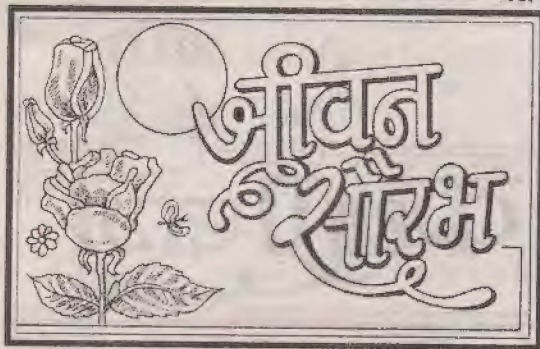 जीवन
सौरभ